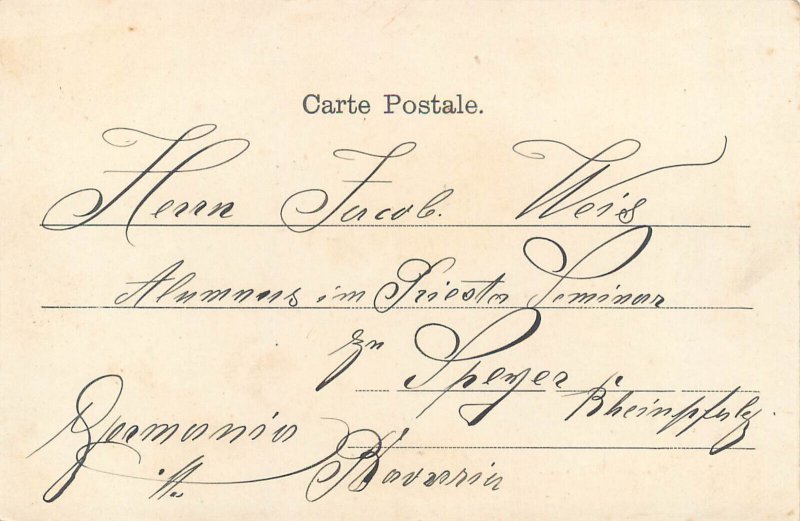 Carte Postale.
Herrn Jacob. Weis
Alumnus im Priester Seminar
zu Speyer
Rheinpfalz.
Germania
Bavaria